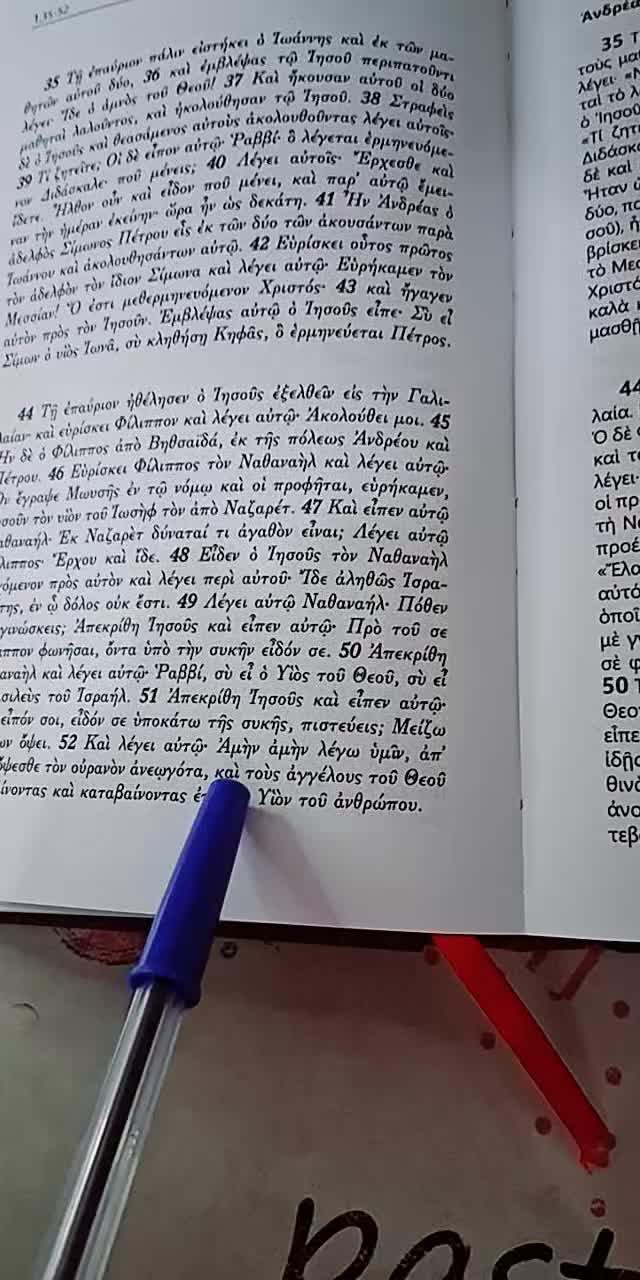 1.35-52
35 Τῇ ἐπαύριον πάλιν εἱστήκει ὁ Ἰωάννης καὶ ἐκ τῶν μα-
θητῶν αὐτοῦ δύο, 36 καὶ ἐμβλέψας τῷ Ἰησοῦ περιπατοῦντι
λέγει· Ἴδε ὁ ἀμνὸς τοῦ Θεοῦ! 37 Καὶ ἤκουσαν αὐτοῦ οἱ δύο
μαθηταὶ λαλοῦντος, καὶ ἠκολούθησαν τῷ Ἰησοῦ. 38 Στραφεὶς
δὲ ὁ Ἰησοῦς καὶ θεασάμενος αὐτοὺς ἀκολουθοῦντας λέγει αὐτοῖς·
39 Τί ζητεῖτε; Οἱ δὲ εἶπον αὐτῷ· Ῥαββί· ὃ λέγεται ἑρμηνευόμε-
νον Διδάσκαλε· ποῦ μένεις; 40 Λέγει αὐτοῖς· Ἔρχεσθε καὶ
ἴδετε. Ἦλθον οὖν καὶ εἶδον ποῦ μένει, καὶ παρ' αὐτῷ ἔμει-
ναν τὴν ἡμέραν ἐκείνην· ὥρα ἦν ὡς δεκάτη. 41 Ἦν Ἀνδρέας ὁ
ἀδελφὸς Σίμωνος Πέτρου εἷς ἐκ τῶν δύο τῶν ἀκουσάντων παρὰ
Ἰωάννου καὶ ἀκολουθησάντων αὐτῷ. 42 Εὑρίσκει οὗτος πρῶτος
τὸν ἀδελφὸν τὸν ἴδιον Σίμωνα καὶ λέγει αὐτῷ· Εὑρήκαμεν τὸν
Μεσσίαν! Ὅ ἐστι μεθερμηνευόμενον Χριστός· 43 καὶ ἤγαγεν
αὐτὸν πρὸς τὸν Ἰησοῦν. Ἐμβλέψας αὐτῷ ὁ Ἰησοῦς εἶπε· Σὺ εἶ
Σίμων ὁ υἱὸς Ἰωνᾶ, σὺ κληθήσῃ Κηφᾶς, ὃ ἑρμηνεύεται Πέτρος.
44 Τῇ ἐπαύριον ἠθέλησεν ὁ Ἰησοῦς ἐξελθεῖν εἰς τὴν Γαλι-
λαίαν· καὶ εὑρίσκει Φίλιππον καὶ λέγει αὐτῷ· Ἀκολούθει μοι. 45
Ἦν δὲ ὁ Φίλιππος ἀπὸ Βηθσαϊδά, ἐκ τῆς πόλεως Ἀνδρέου καὶ
Πέτρου. 46 Εὑρίσκει Φίλιππος τὸν Ναθαναὴλ καὶ λέγει αὐτῷ·
ν ἔγραψε Μωυσῆς ἐν τῷ νόμῳ καὶ οἱ προφῆται, εὑρήκαμεν,
σοῦν τὸν υἱὸν τοῦ Ἰωσὴφ τὸν ἀπὸ Ναζαρέτ. 47 Καὶ εἶπεν αὐτῷ
αθαναήλ· Ἐκ Ναζαρὲτ δύναταί τι ἀγαθὸν εἶναι; Λέγει αὐτῷ
λιππος· Ἔρχου καὶ ἴδε. 48 Εἶδεν ὁ Ἰησοῦς τὸν Ναθαναὴλ
όμενον πρὸς αὐτὸν καὶ λέγει περὶ αὐτοῦ· Ἴδε ἀληθῶς Ἰσρα-
της, ἐν ᾧ δόλος οὐκ ἔστι. 49 Λέγει αὐτῷ Ναθαναήλ· Πόθεν
γινώσκεις; Ἀπεκρίθη Ἰησοῦς καὶ εἶπεν αὐτῷ· Πρὸ τοῦ σε
ιππον φωνῆσαι, ὄντα ὑπὸ τὴν συκῆν εἶδόν σε. 50 Ἀπεκρίθη
αναὴλ καὶ λέγει αὐτῷ· Ῥαββί, σὺ εἶ ὁ Υἱὸς τοῦ Θεοῦ, σὺ εἶ
σιλεὺς τοῦ Ἰσραήλ. 51 Ἀπεκρίθη Ἰησοῦς καὶ εἶπεν αὐτῷ·
εἶπόν σοι, εἶδόν σε ὑποκάτω τῆς συκῆς, πιστεύεις; Μείζω
ων ὄψει. 52 Καὶ λέγει αὐτῷ· Ἀμὴν ἀμὴν λέγω ὑμῖν, ἀπ'
ὄψεσθε τὸν οὐρανὸν ἀνεῳγότα, καὶ τοὺς ἀγγέλους τοῦ Θεοῦ
ίνοντας καὶ καταβαίνοντας Υἱὸν τοῦ ἀνθρώπου.
Ἀνδρέα
35 Τ
τοὺς μα
λέγει· «
ταὶ τὸ λ
ὁ Ἰησο
«Τί ζητ
Διδάσκ
δὲ καὶ
Ἦταν
δύο, πο
σοῦ), ἦ
βρίσκε
τὸ Μεσ
Χριστό
καλὰ
μασθῇ
44
λαία.
Ὁ δὲ
καὶ τ
λέγει·
οἱ πρ
τῆ Ν
προέ
«Ἔλα
αὐτό
ὁποῖ
μὲ γ
σὲ φ
50 Τ
Θεο
εἶπε
ἰδῇς
θινὰ
ἀνο
τεβ
past